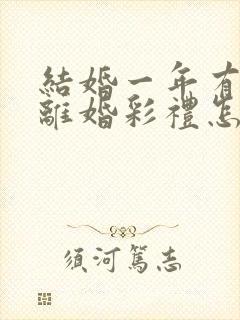 結婚一年有
離婚彩禮怎
須河篤志